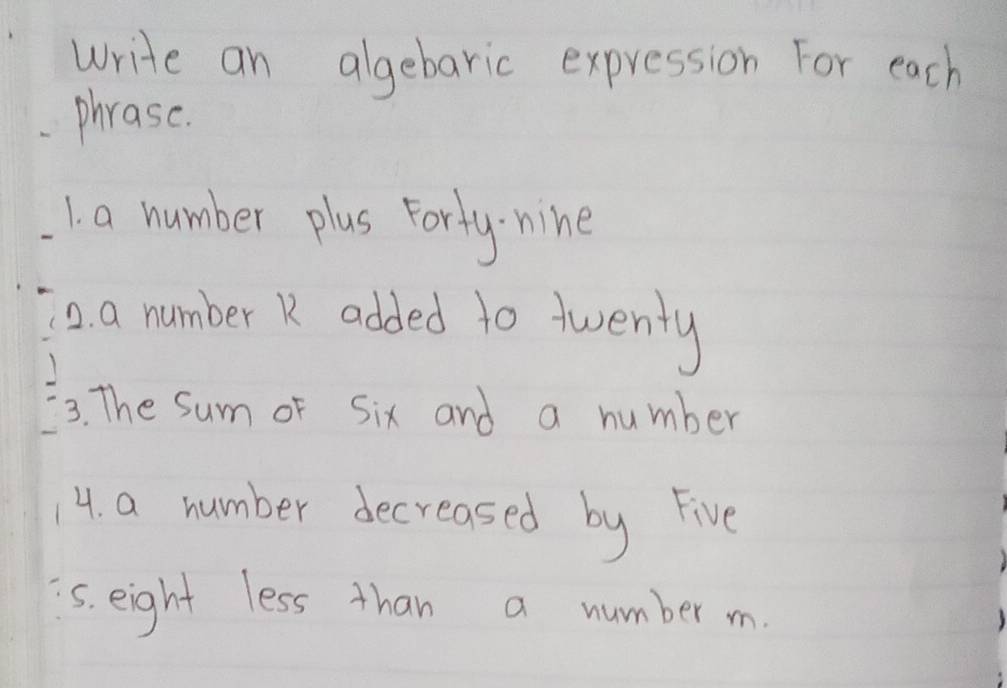 Write an algebaric expression For each
phrase.
1. a number plus Forty-nine
2. a number k added to twenty
3. The sum of six and a number
4. a number decreased by Five
5. eight less than a number m.